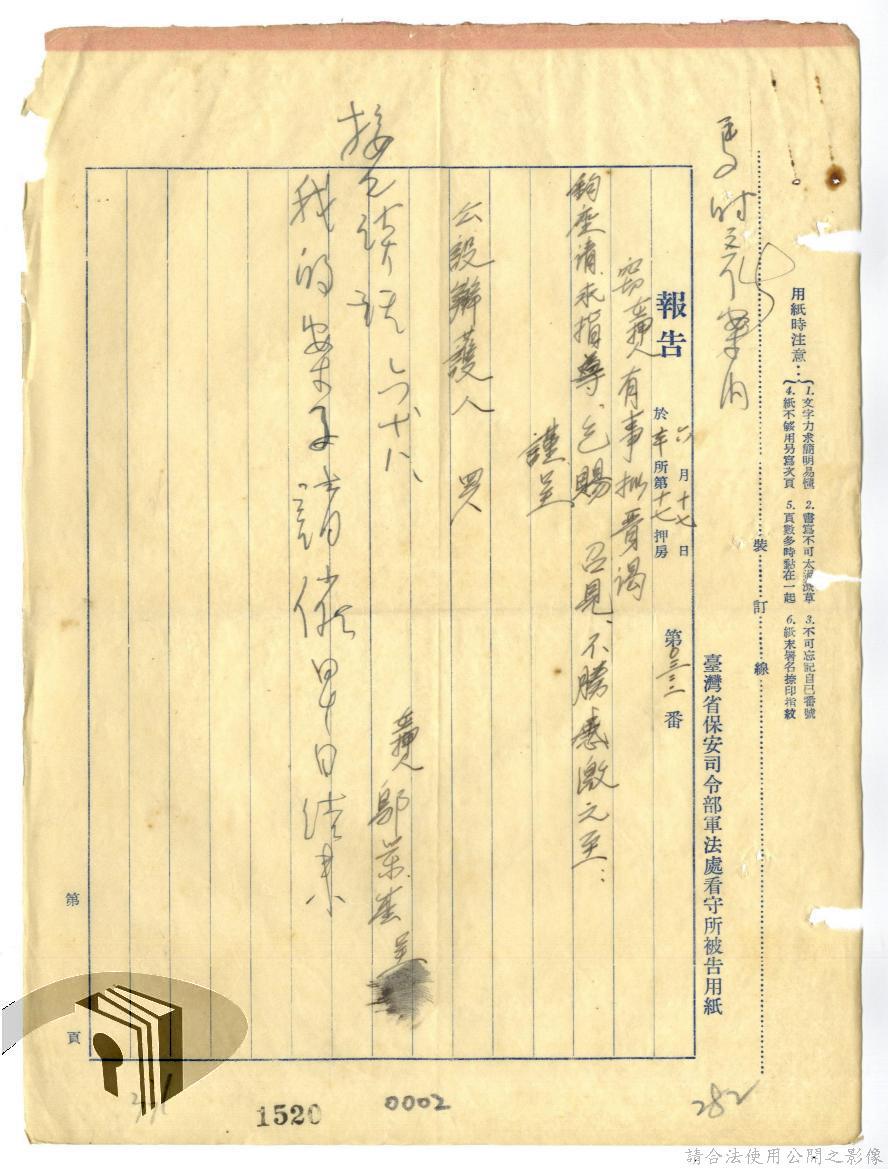 馬時彥案內
用紙時注意：
1. 文字力求簡明易懂
2. 書寫不可太潦草
3. 不可忘記自己番號
4. 紙不够用另寫次頁
5. 頁數多時黏在一起
6. 紙末署名捺印指紋
裝訂線
臺灣省保安司令部軍法處看守所被告用紙
報告
六月十七日
於本所第十七押房
第0三二二番
竊 有事擬晉謁
鈞座請求指導、乞賜 召見、不勝感激之至：
謹呈
公設辯護人
鄔 基呈
接見談話 六十八、
我的案子請儘早日結束
第 頁
1520
0002
282
請合法使用公開之影像